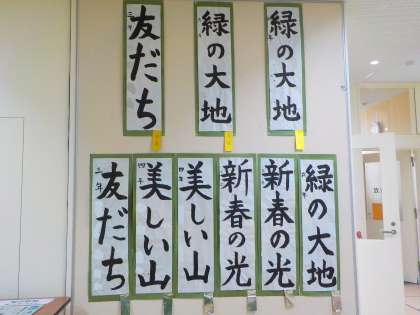 友だち
三年
緑の大地
緑の大地
友だち
三年
美しい山
四年
美しい山
新春の光
新春の光
緑の大地